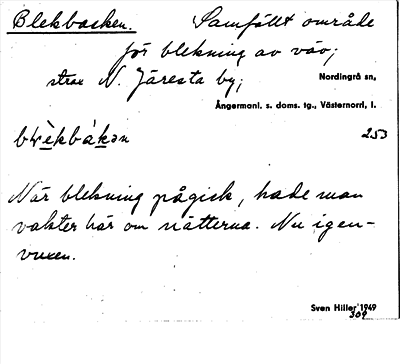 Blekbacken. Samfällt område
för blekning av väv;
strax N. Järesta by; Nordingrå sn,
Ångermanl. s. doms. tg., Västernorrl. l.
253
När blekning pågick, hade man
vakter här om nätterna. Nu igen-
vuxen.
Sven Hiller 1949
309